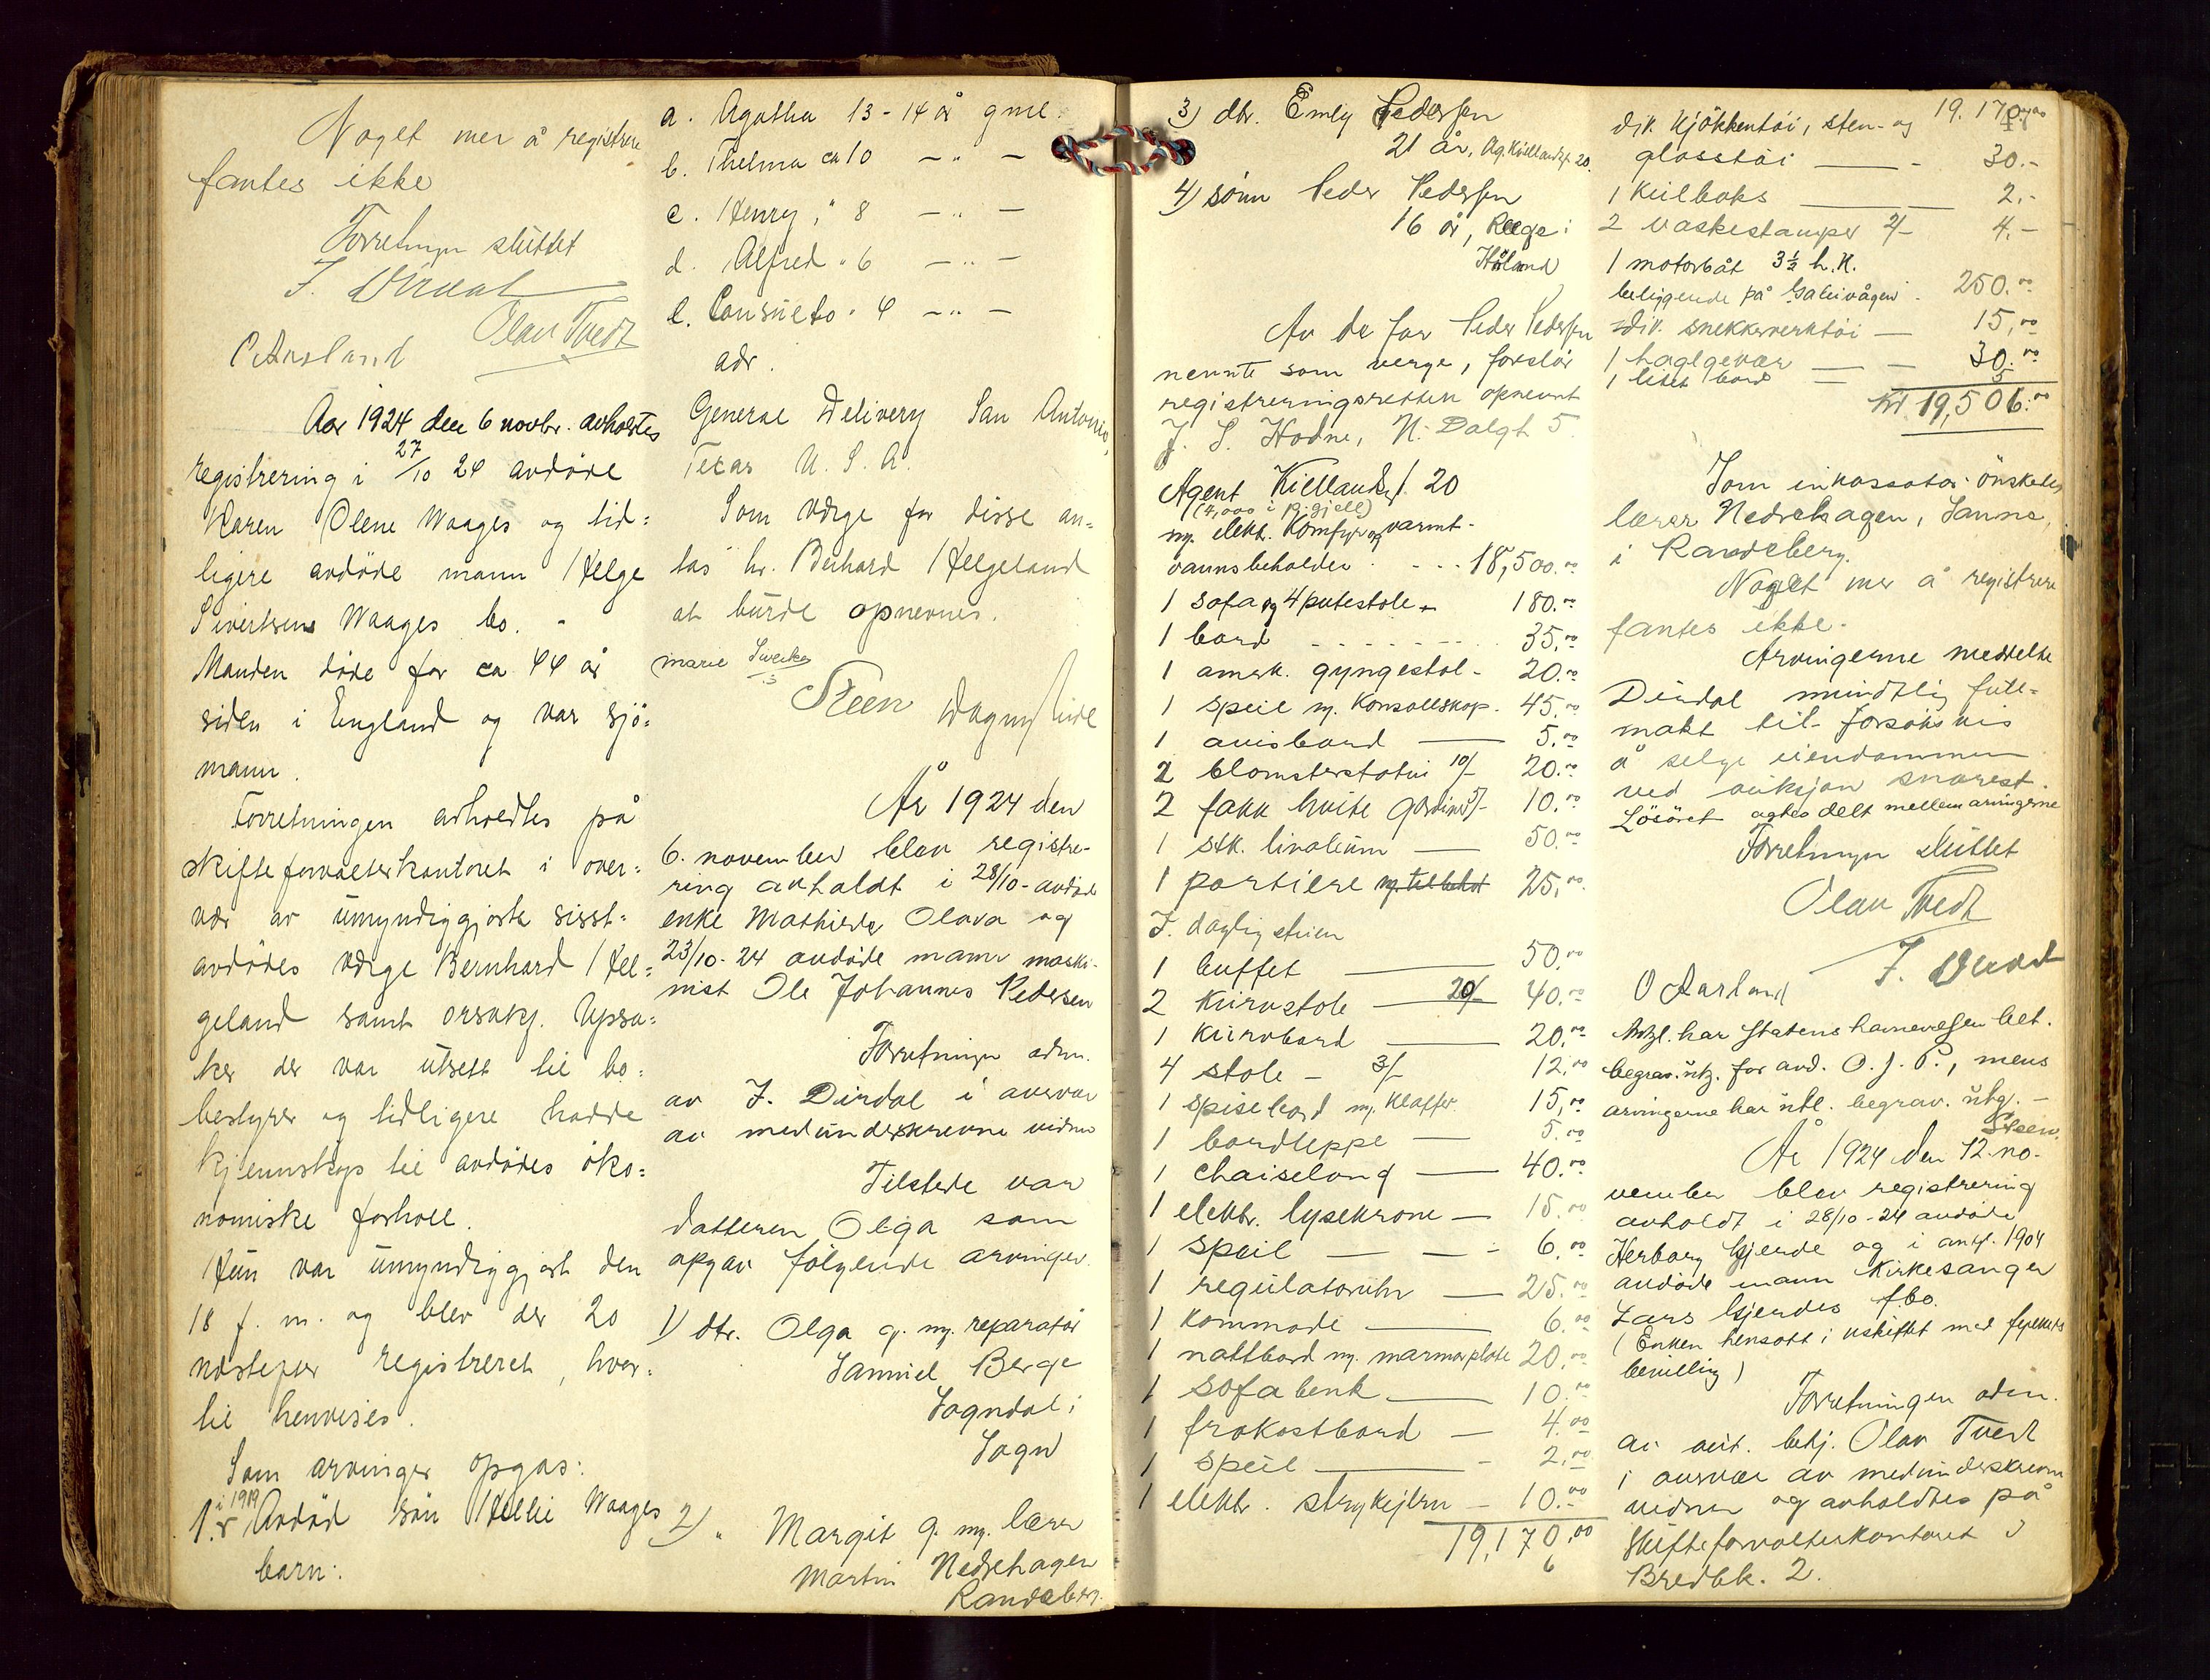 Noget mer å registrere
fantes ikke
Forretningen sluttet
J. Dirdal
Olav Tvedt
O Aarsland
Aar 1924 den 6 novbr. avholdtes
registrering i 27/10 24 avdöde
Karen Olene Waages og tid=
ligere avdöde mann Helge
Sivertsens Waages bo. -
Manden döde for ca 44 år
siden i England og var sjö=
mann.
Forretningen avholdtes på
skifteforvalterkontoret i over=
vær av umyndiggjorte sisst=
avdödes værge Bernhard Hel=
geland samt orsakf. Upsa=
ker der var utsett til bo=
bestyrer og tidligere hadde
kjennskap til avdödes öko=
nomiske forhold.
Hun var umyndiggjort den
18 f. m. og blev der 20
næstefor registreret, hvor=
til henvises.
Som arvinger opgas:
1. i 1919 Avdöd sön Hellie Waages
barn:
a. Agatha 13-14 år gml.
b. Thelma ca 10 — " —
c. Henry, " 8 — " —
d. Alfred " 6 — " —
e. Consuelo " 4 — " —
adr.
General Delivery San Antonio,
Texas U. S. A.
Som værge for disse an=
tas hr. Bernhard Helgeland
at burde opnevnes.
marie
Steen Dagny
År 1924 den
6. november blev registre-
ring avholdt i 28/10 - avdöde
enke Mathilde Olava og
23/10-24 avdöde mann maski-
nist Ole Johannes Pedersen
Forretningen adm.
av J. Dirdal i overvær
av medunderskrevne vidner
Tilstede var
datteren Olga som
opgav følgende arvinger.
1) dtr. Olga g. m. reparatör
Samuel Berge
Sogndal i
Sogn
2) " Margit g. m. lærer
Martin Nedrehagen
Randaberg.
3) dtr. Emly Pedersen
21 år, Ag. Kiellandsgt 20.
4) sönn Peder Pedersen
16 år, Rege i
Håland
Av de for Peder Pedersen
nevnte som verge, foreslår
registreringsretten opnevnt
J. S. Hodne, N. Dalgt 5.
Agent Kiellandsgt. 20
(4,000 i p. gjeld)
m. elektr. Komfyr og varmt-
vannsbeholder . - - - 18,500.00
1 sofa og 4 putestole - 180.00
1 bord - - - - - - 35.00
1 amerk. gyngestol - 20.00
1 speil m. konsollskap - 45.00
1 avisbord — 5.00
2 blomsterstativ 10/- 20.00
2 fakk hvite gardiner 5/- 10.00
1 stk. linoleum — 50.00
1 portiere m. tilbehör 25.00
I. daglig stuen
1 buffet — 50.00
2 kurvstole — 20/- 40.00
1 kurvbord — 20.00
4 stole - 3/- 12.00
1 spisebord m. klaffer 15.00
1 bordteppe — 5.00
1 chaiselong — 40.00
1 elektr. lysekrone — 15.00
1 speil — — - 6.00
1 regulatoruhr — 25.00
1 kommode — 6.00
1 nattbord m. marmorplate 20.00
1 sofabenk — 10.00
1 frokostbord — 4.00
1 speil — 2.00
1 elektr. strykejern - 10.00
19,170.00
6
19.170.00
div. kjökkentöi, sten- og
glasstöi — - 30.-
1 kulboks — 2.-
2 vaskestamper 2/- 4.-
1 motorbåt 3½ h.K.
beliggende på Galeivågen - 250.00
div. snekkerverktöi — 15.00
1 haglgevær — - 30.00
1 litet bord = 5
Kr. 19,506.00
Som inkassator önskedes
lærer Nedrehagen, Sunne,
i Randeberg.
Noget mer å registrere
fantes ikke.
Arvingerne meddelte
Dirdal mundtlig full=
makt til forsöksvis
å selge eiendommen
ved auksjon snarest.
Lösöret agtes delt mellem arvingerne
Forretningen sluttet
Olav Tvedt
J. Dirdal
O Aarsland
Antgl. har Statens havnevesen bet.
begrav. utg. for avd. O. J. P., mens
arvingerne har utl. begrav. utg. -
Steen.
År 1924 den 12. no-
vember blev registrering
avholdt i 28/10-24 avdöde
Herborg Gjerde og i antgl. 1904
avdöde mann Kirkesanger
Lars Gjerdes f.bo.
(Enken hensatt i uskiftet med
bevilling)
Forretningen adm.
av aut. betj. Olav Tvedt
i overvær av medunderskrevne
vidner og avholdtes på
Skifteforvalterkontoret
Bredbk. 2.